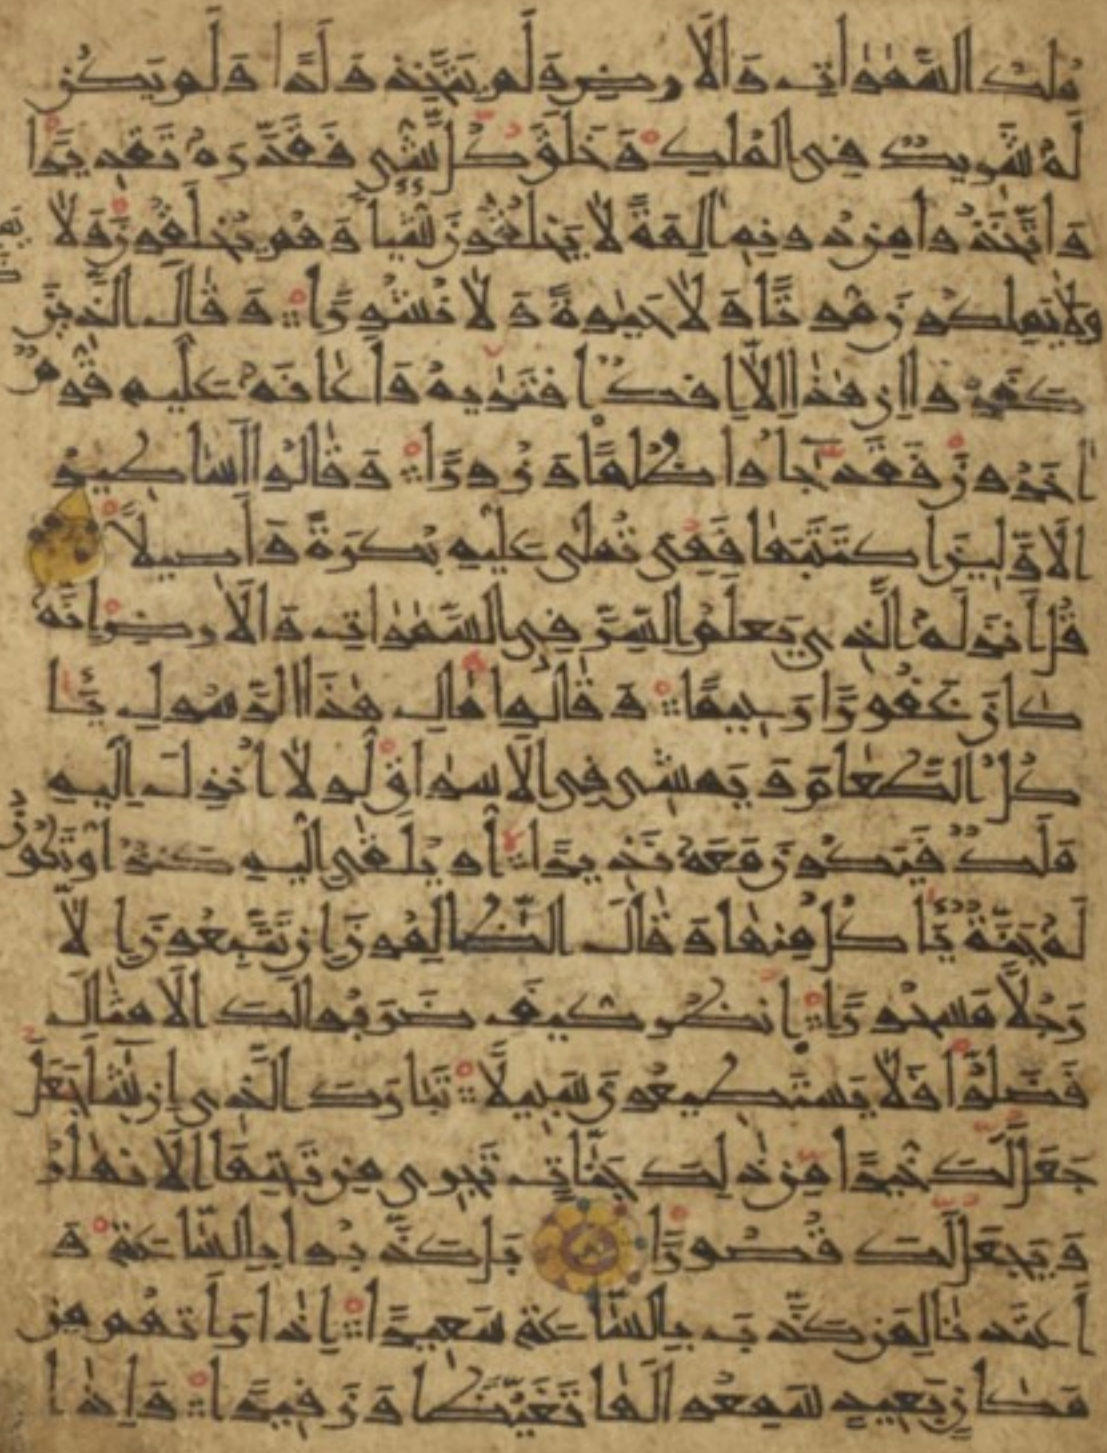 ملك السموات والارض ولم يتخذ ولدا ولم يكن
له شريك في الملك وخلق كل شي فقدره تقديرا
واتخذوا من دونه الهة لا يخلقون شيا وهم يخلقون ولا
ولا يملكون موتا ولا حيوة ولا نشورا وقال الذين
كفروا ان هذا الا افك افتريه واعانه عليه قوم
اخرون فقد جاوا ظلما وزورا وقالوا اساطير
الاولين اكتتبها فهي تملى عليه بكرة واصيلا
قل انزله الذي يعلم السر في السموات والارض انه
كان غفورا رحيما وقالوا مال هذا الرسول يا
كل الطعام ويمشي في الاسواق لولا انزل اليه
ملك فيكون معه نذيرا او يلقى اليه كنز او تكون
له جنة يا كل منها وقال الظالمون ان تتبعون الا
رجلا مسحورا انظر كيف ضربوا لك الامثال
فضلوا فلا يستطيعون سبيلا تبارك الذي ان شا جعل
جعل لك خيرا من ذلك جنات تجري من تحتها الانهار
ويجعل لك قصورا بل كذبوا بالساعة و
اعتدنا لمن كذب بالساعة سعيرا اذا راتهم من
مكان بعيد سمعوا لها تغيظا وزفيرا واذا